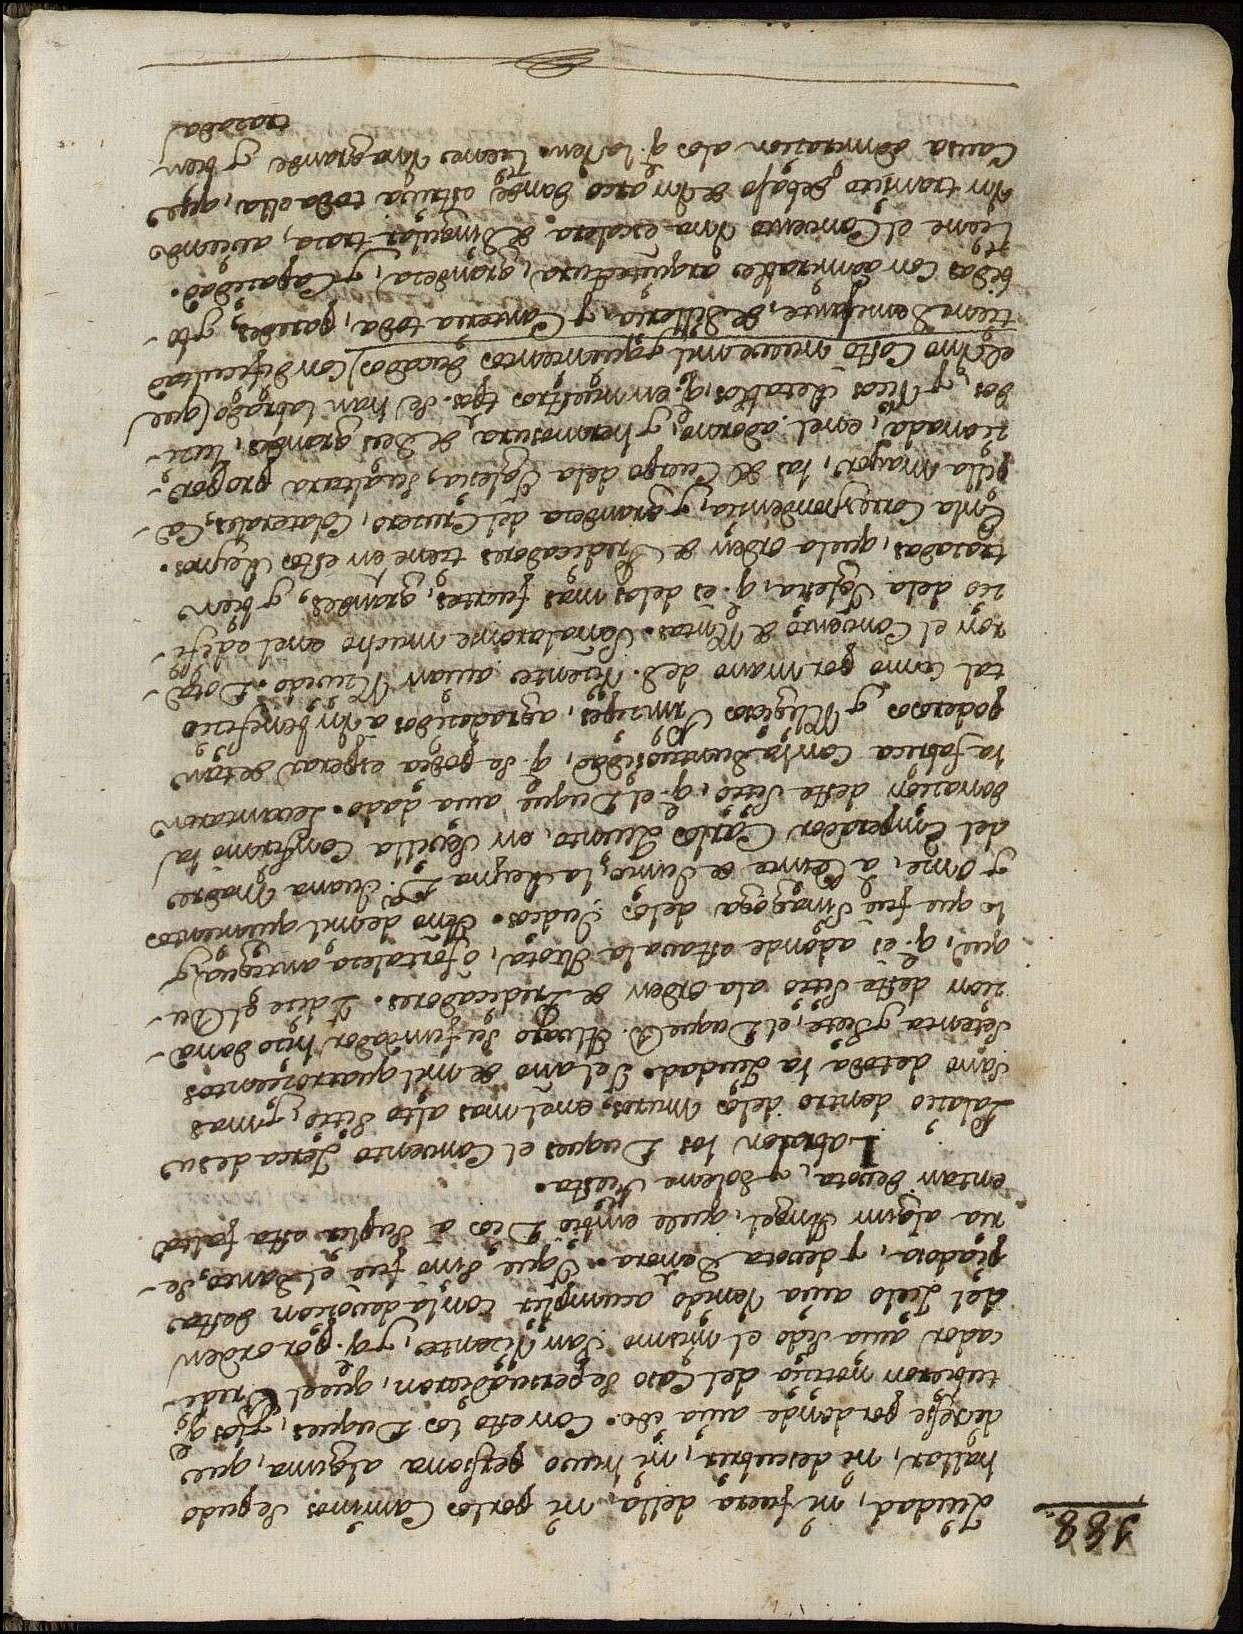 388.
Ziudad, ni fuera della, ni por los Caminos se pudo
hallar, ni descubrir, ni huuo persona alguna, que
dexesse por donde auia ido. Con esto los Duques, y los q̃
tubieron notiçia del Caso se persuadieron, que el Predi-
cador auia sido el mismo San Viçente, y q̃ por orden
del Zielo auia Venido a cumplir con la deuoçion desta
piadosa, y deuota Señora. O que sino fue el Sancto, se-
ria algun Angel, que le embio Dios a suplir esta falta
en tan deuota, y solene fiesta.
Labraron los Duques el Conuento Zerca de su
Palaçio dentro de los muros, en el mas alto sitio, y mas
sano de toda la Ziudad. I el año de mil quatroçientos
setenta y siete, el Duque D. Aluaro su fundador hizo dona-
zion deste sitio a la orden de Predicadores. I dize el Du-
que, q̃ es adonde estaua la Mota, o fortaleza antigua, y
lo que fue Sinagoga de los Judios. Año de mil quinientos
y onze, a Veinte de Junio, la Reyna D.ª Juana Madre
del Emperador Carlos Quinto, en Seuilla Confirmo la
donaçion deste sitio, q̃ el Duque auia dado. Leuantaron
la fabrica con la suntuosidad, q̃ se podia esperar de tan
poderosos, y Religiosos Prinçipes, agradeçidos a Vn benefiçio
tal como por mano de S. Viçente auian Reçiuido. Dota-
ron el Conuento de Rentas. Señalaronse mucho en el edifi-
çio de la Iglesia, q̃ es de las mas fuertes, grandes, y bien
trazadas, que la orden de Predicadores tiene en estos Reynos.
En la Correspondençia, y grandeza del Cruzero, Colaterales, Ca-
pilla mayor, las del Cuerpo de la Iglesia, su altura propor-
zionada, en el adorno, y hermosura de seis grandes, luzi-
dos, y Ricos Retablos, q̃ en nuestros tpos. se han labrado (que
el Vno Costo nueue mil y quinientos ducados) con dificultad
tiene semejante, de silleria, y Canteria toda, paredes, y bo-
bedas con admirables arquitectura, grandeza, y Capaçidad.
Tiene el Conuento Vna escalera de singular traza, auiendo
Vn transito debajo de Vn arco donde estriua toda ella, que
Causa admiraçion a los q̃ la Ven. Tiene Vna grande y bien
trazada